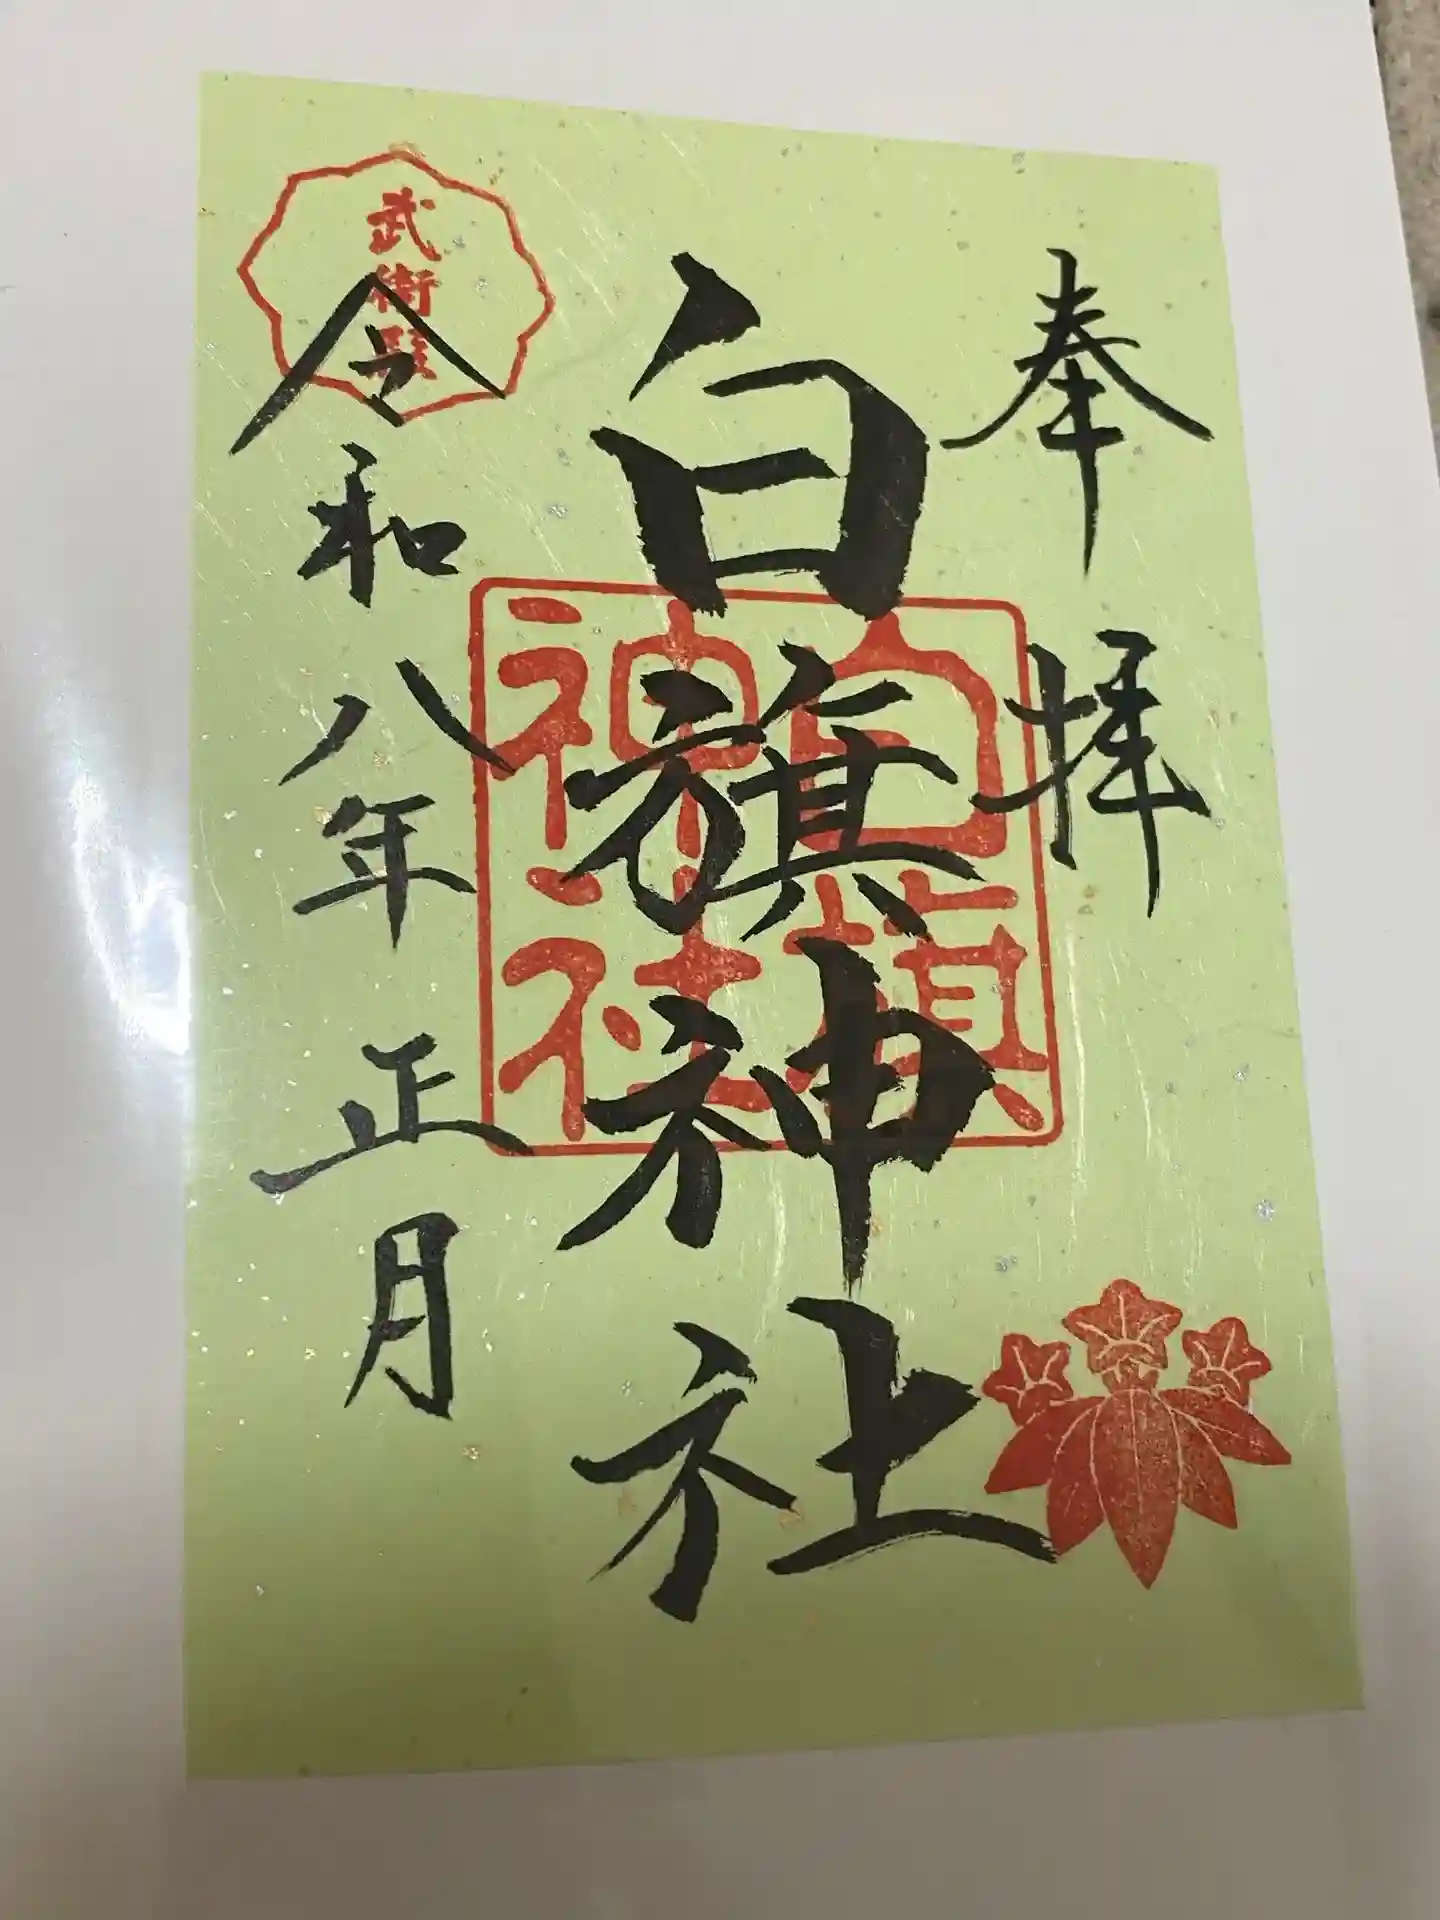 奉拝
白旗神社
白旗
神社
武衛殿
令和八年正月